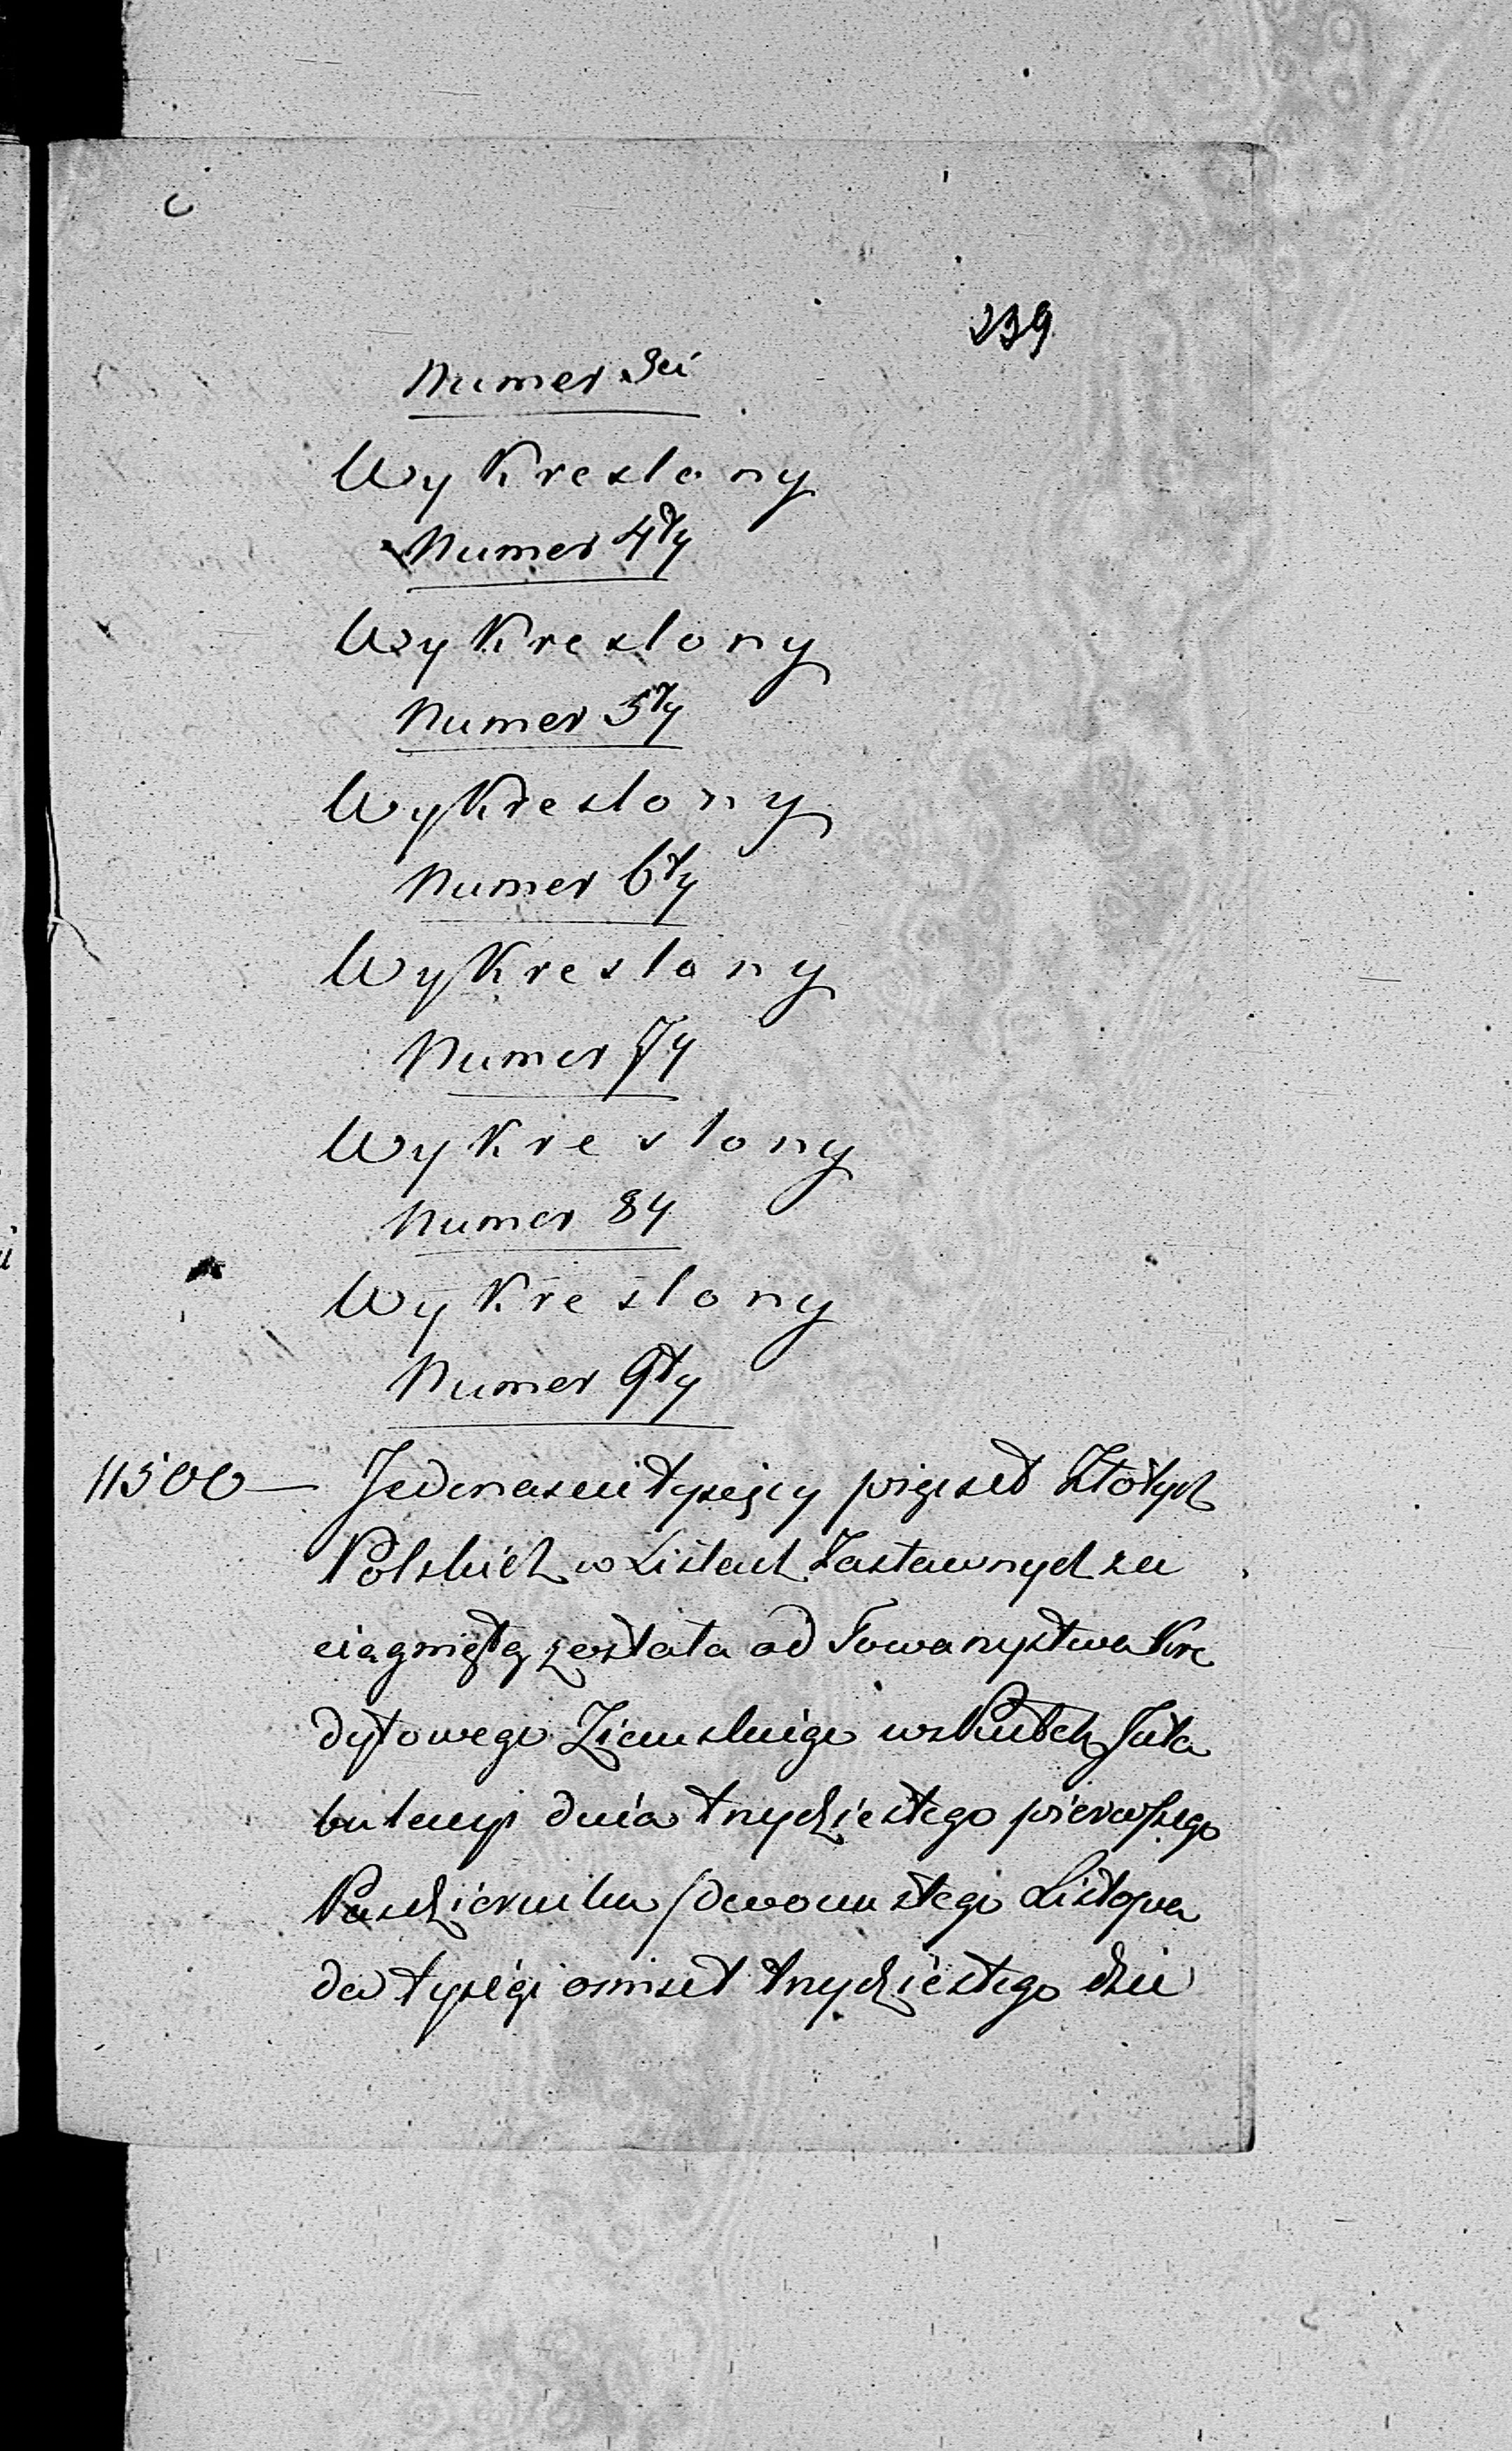 239
Numer 3ci
Wykreslony
Numer 4ty
Wykreslony
Numer 5ty
Wykreslony
Numer 6ty
Wykreslony
Numer 7y
Wykreslony
Numer 8y
Wykreslony
Numer 9ty
11500 — Jedenascie tysięcy pięcset Złotych
Polskich w Listach Zastawnych za
ciągniętą została od Towarzystwa Kre
dytowego Ziemskiego wskutek Inta
bulacyi dnia trzydziestego pierwszego
Pazdziernika / dwunastego Listopa
da tysiąc osmset trzydziestego dzie